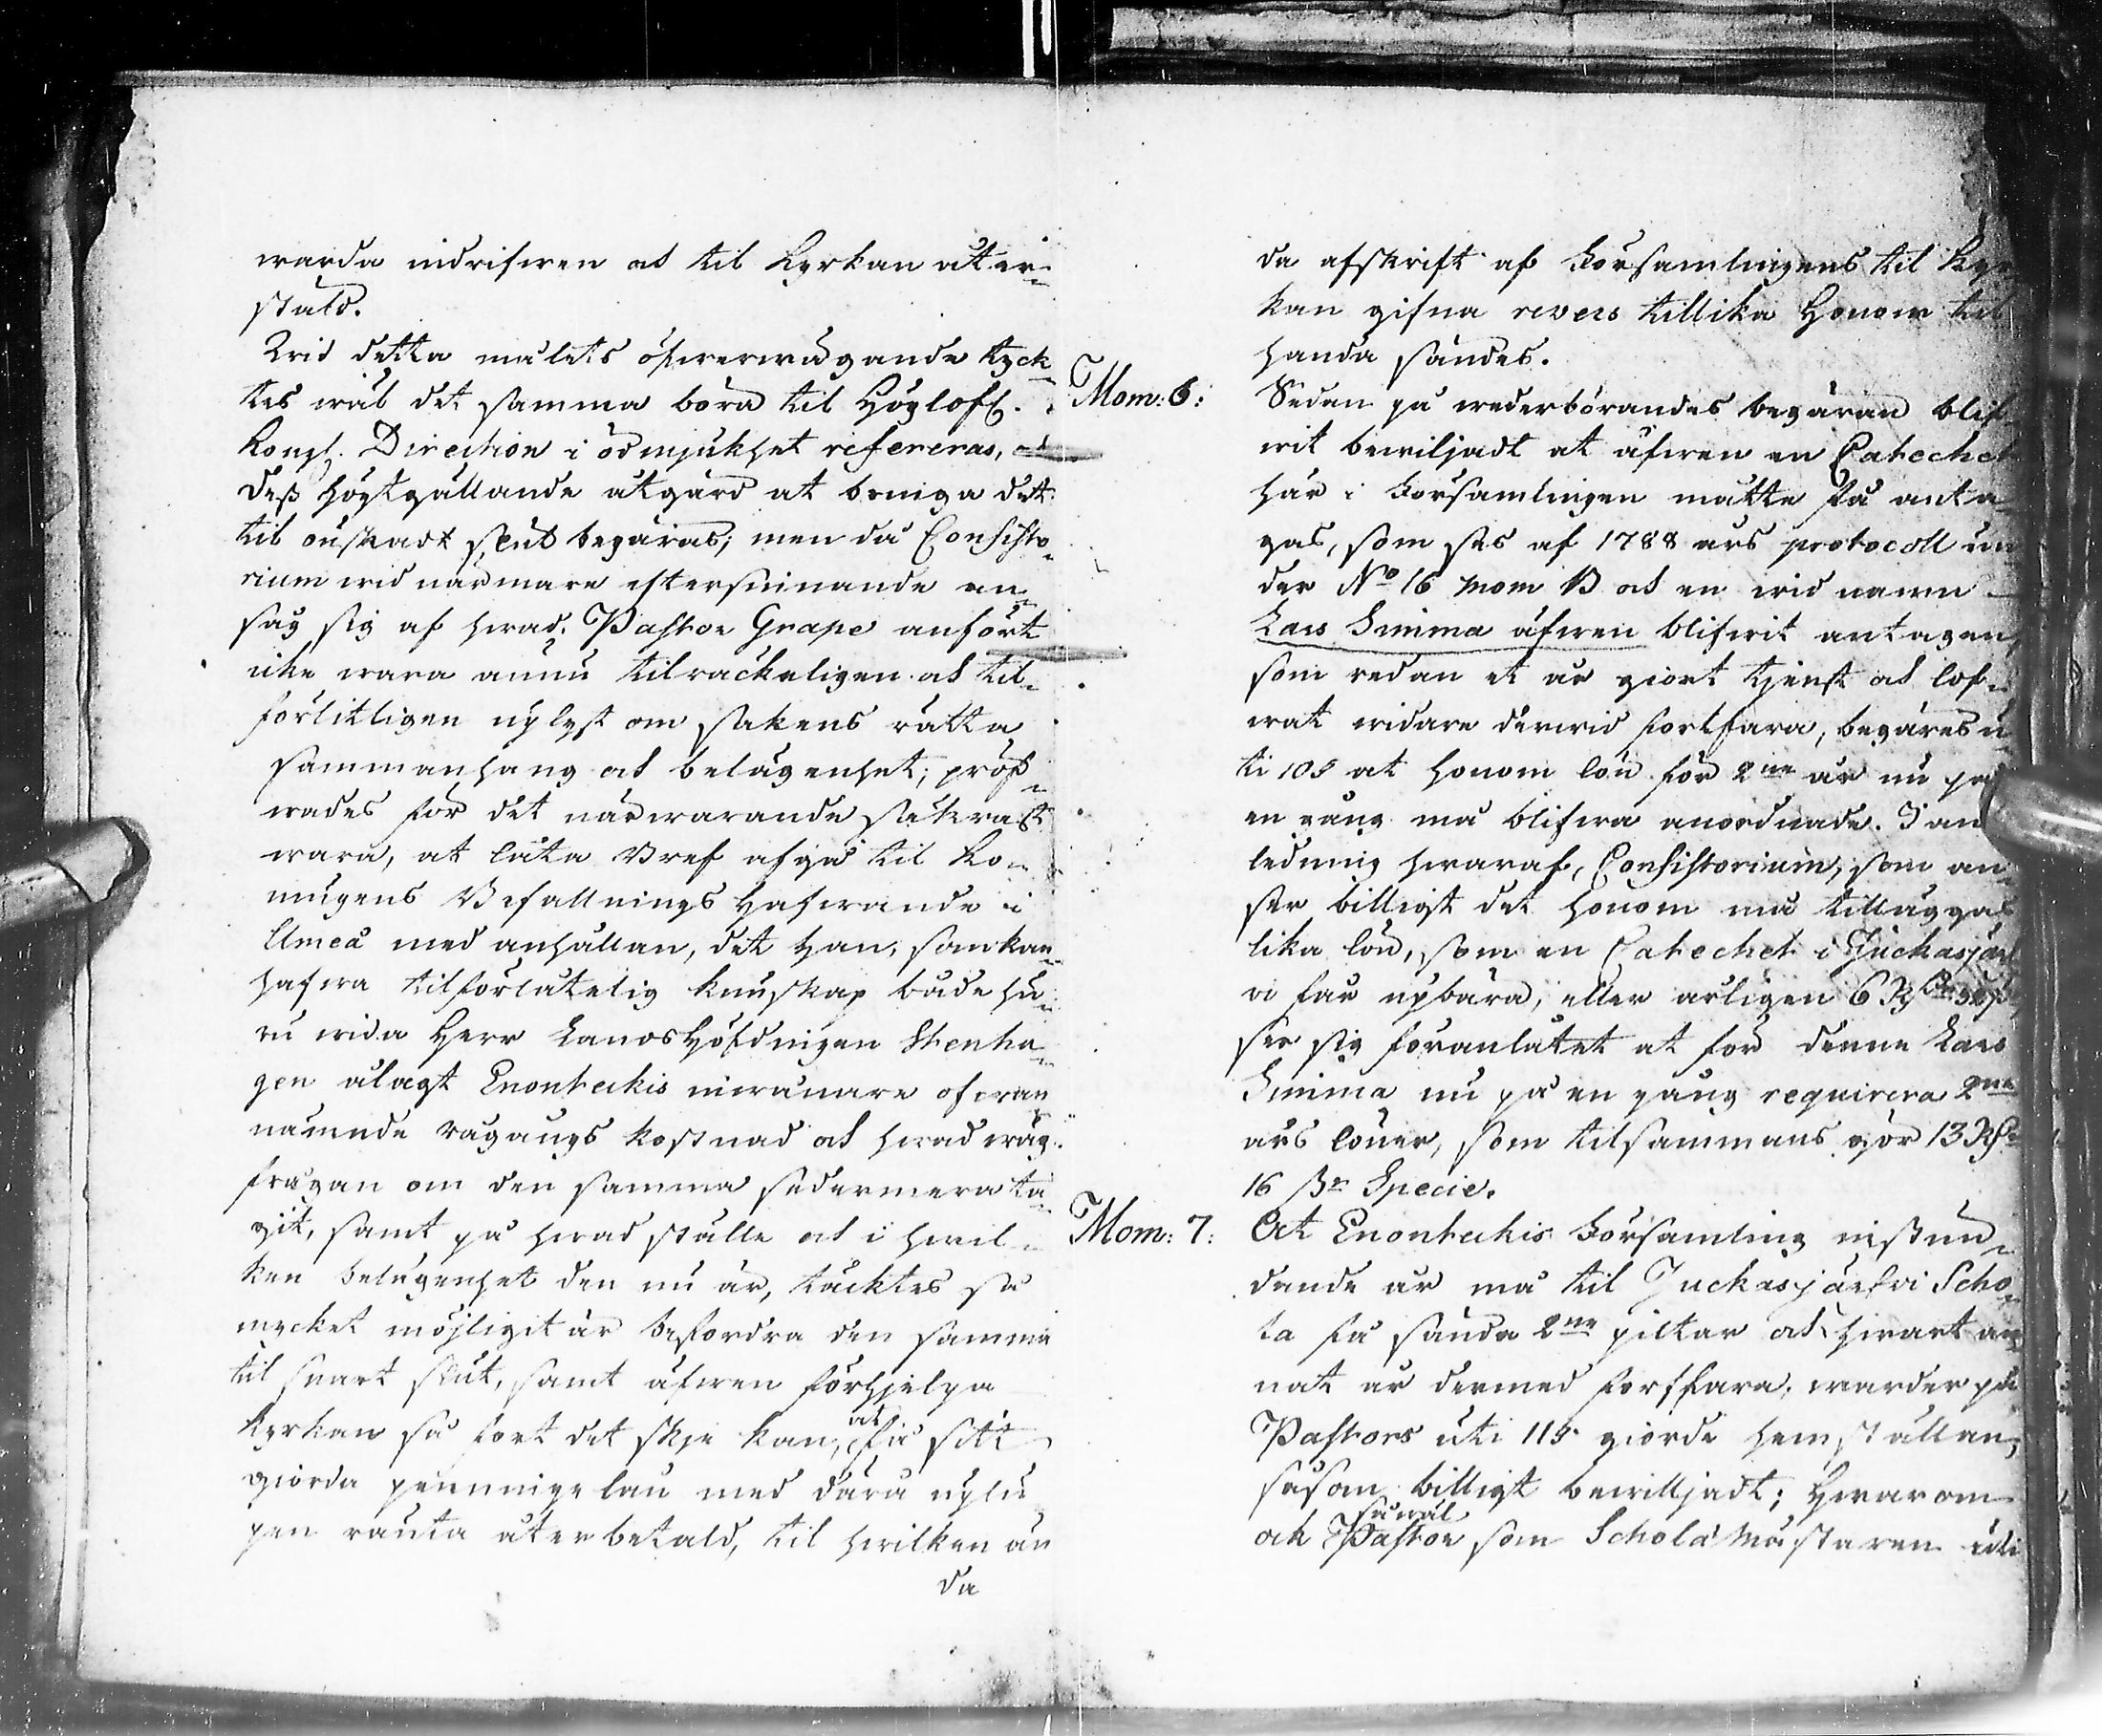 warda indrifwen och til Kyrkan åter-
stäld.
Wid detta målets öfwerwägande tyck-
tes wäl det samma böra til Höglofl.
Kongl. Direction i ödmjukhet refereras, och
deß högtgällande åtgärd at bringa det
til önskadt slut begäras; men då Consisto-
rium wid närmare eftersinnande an-
såg sig af hwad Pastor Grape anfört
icke wara ännu tilräckeligen och til-
förlitligen uplyst om sakens rätta
sammanhang och belägenhet; pröf-
wades för det närwarande säkrast
wara, at låta Bref afgå til Ko-
nungens Befallningshafwande i
Umeå med anhållan, det Han, som kan
hafwa tilförlåtelig kunskap både hu-
ru wida Herr Landshöfdingen Stenha-
gen ålagt Enontekis inwånare ofwan-
nämnde rågångs kostnad och hwad wäg
frågan om den samma sedermera ta-
git, samt på hwad ställe och i hwil-
ken belägenhet den nu är, täcktes så
mycket möjligit är befordra den samma
til snart slut, samt äfwen förhjelpa
Kyrkan så fort det skje kan, at få sitt
giorda penningelån med dära uplu
pen ränta återbetald, til hwilken än
da
da afskrift af Församlingens til Kyr
kan gifna revers tillika Honom til
handa sändes.
Mom: 6: Sedan på wederbörandes begäran blif
wit bewiljadt at äfwen en Catechet
här i Församlingen måtte få anta
gas, som ses af 1788 års protocoll un
der No 16 mom B och en wid namn
Lars Simma äfwen blifwit antagen,
som redan et år giort tjenst och lof-
wat widare derwid fortfara, begäres u
ti 10§ at honom lön för 2ne år nu på
en gång må blifwa anordnade. I an
ledning hwaraf, Consistorium, som an
ser billigt det honom må tilläggas
lika lön, som en Catechet i Juckasjärf
vi får upbära, eller årligen 6 Rdr 32 ß
ser sig föranlåtet at för denne Lars
Simma nu på en gång requirera 2ne
års löner, som tilsammans gör 13 Rdr
16 ßr Specie.
Mom: 7: At Enontekis Församling instun-
dande år må til Juckasjärfvi Scho-
la få sända 2ne piltar och hwart an
nat år dermed fortfara, warder på
Pastors uti 11§ giorde hemställan,
såsom billigt bewilljadt; Hwarom
ock såwäl Pastor som Scholä Mästaren uti